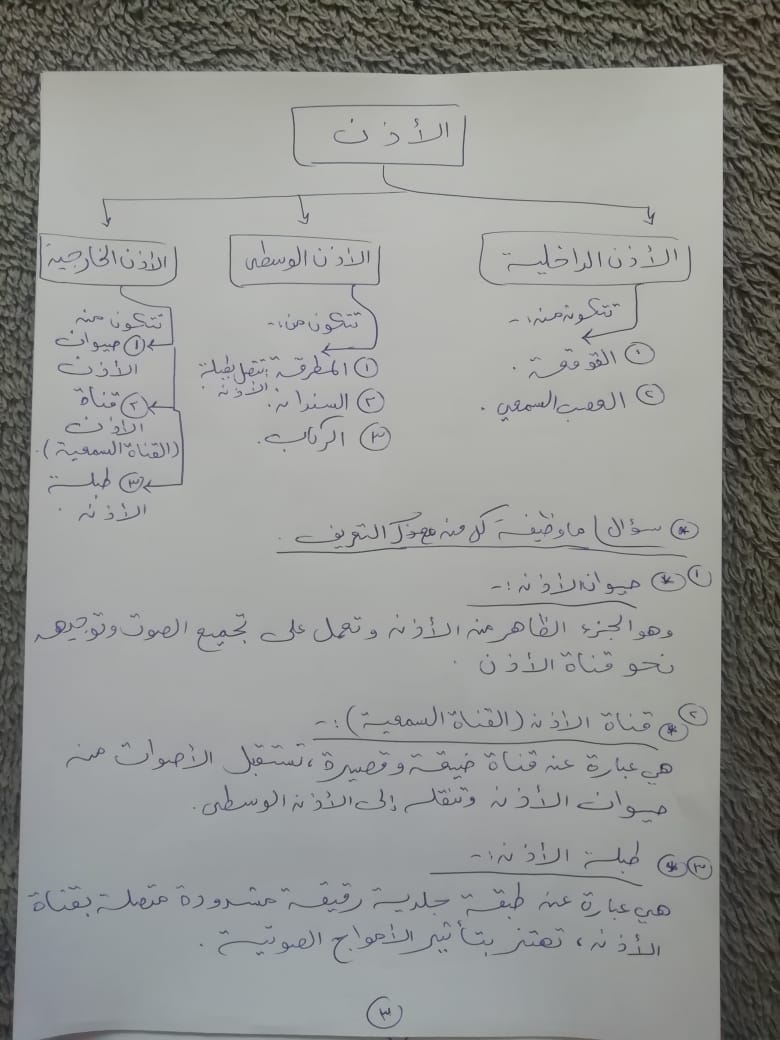 الأذن
الأذن الداخلية
تتكون من :-
١ القوقعة .
٢ العصب السمعي .
الأذن الوسطى
تتكون من :-
١ المطرقة تتصل بطبلة الأذن
٢ السندان .
٣ الركاب .
الأذن الخارجية
تتكون من
١ صيوان
الأذن
٢ قناة
الأذن
(القناة السمعية).
٣ طبلة
الأذن .
* سؤال / ما وظيفة كل من مع ذكر التعريف .
١ * صيوان الأذن :-
وهو الجزء الظاهر من الأذن وتعمل على تجميع الصوت وتوجيهه
نحو قناة الأذن .
٢ * قناة الأذن (القناة السمعية) :-
هي عبارة عن قناة ضيقة وقصيرة ، تستقبل الأصوات من
صيوان الأذن وتنقله إلى الأذن الوسطى .
٣ * طبلة الأذن :-
هي عبارة عن طبقة جلدية رقيقة مشدودة متصلة بقناة
الأذن ، تهتز بتأثير الأمواج الصوتية .
٣